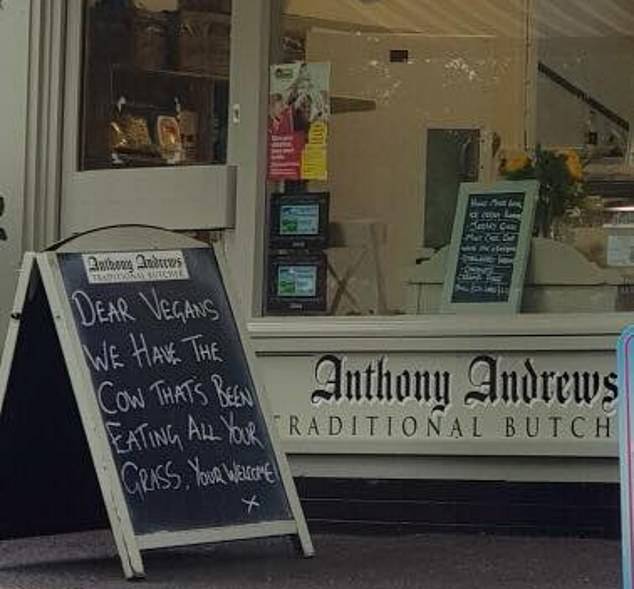 Anthony Andrews
TRADITIONAL BUTCHER
DEAR VEGANS
WE HAVE THE
COW THATS BEEN
EATING ALL YOUR
GRASS. YOUR WELCOME
X
Anthony Andrews
TRADITIONAL BUTCH